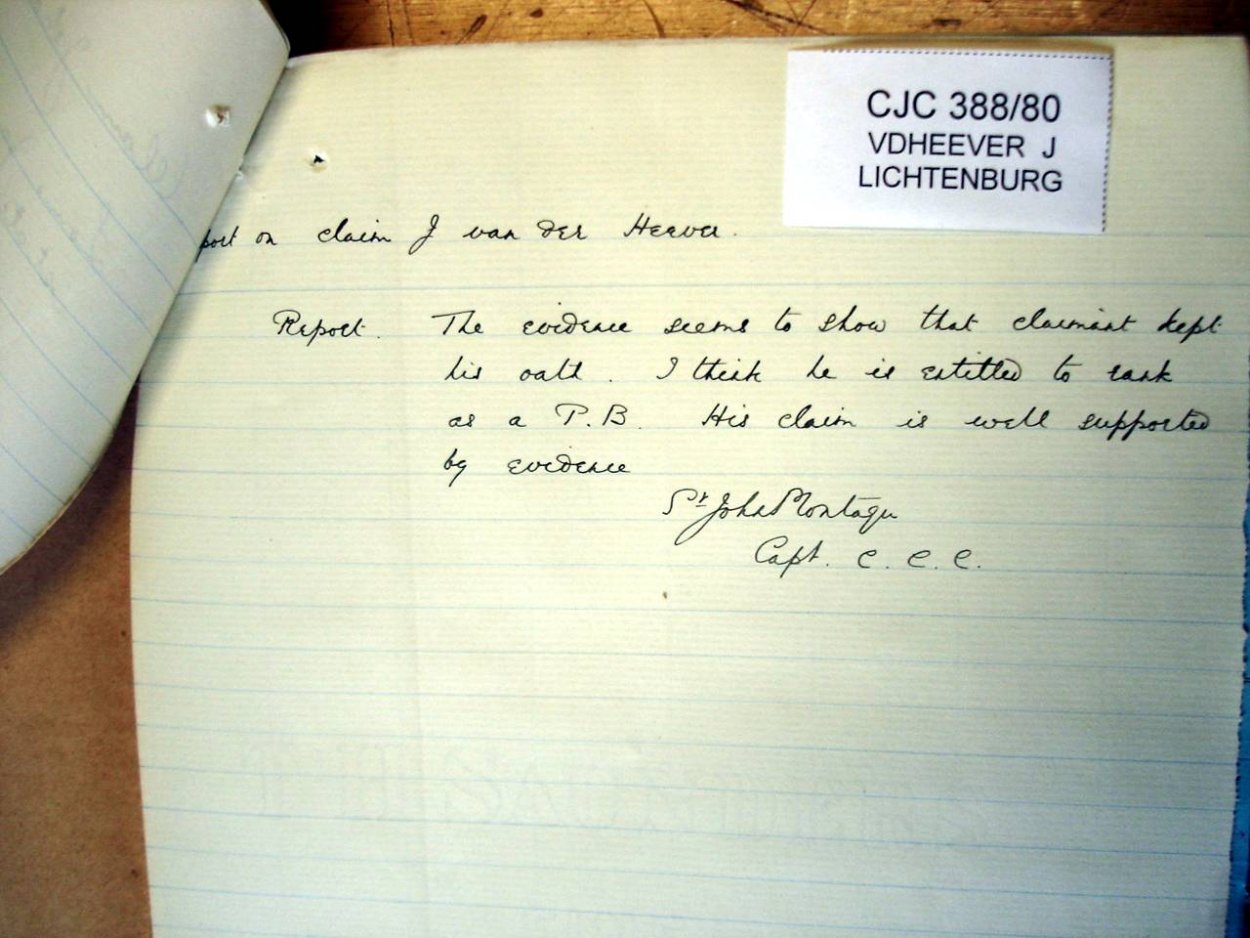 CJC 388/80
VDHEEVER J
LICHTENBURG
port on claim J van der Heever.
Report. The evidence seems to show that claimant kept
his oath. I think he is entitled to rank
as a P.B. His claim is well supported
by evidence
St John Montagu
Capt. C. C. C.